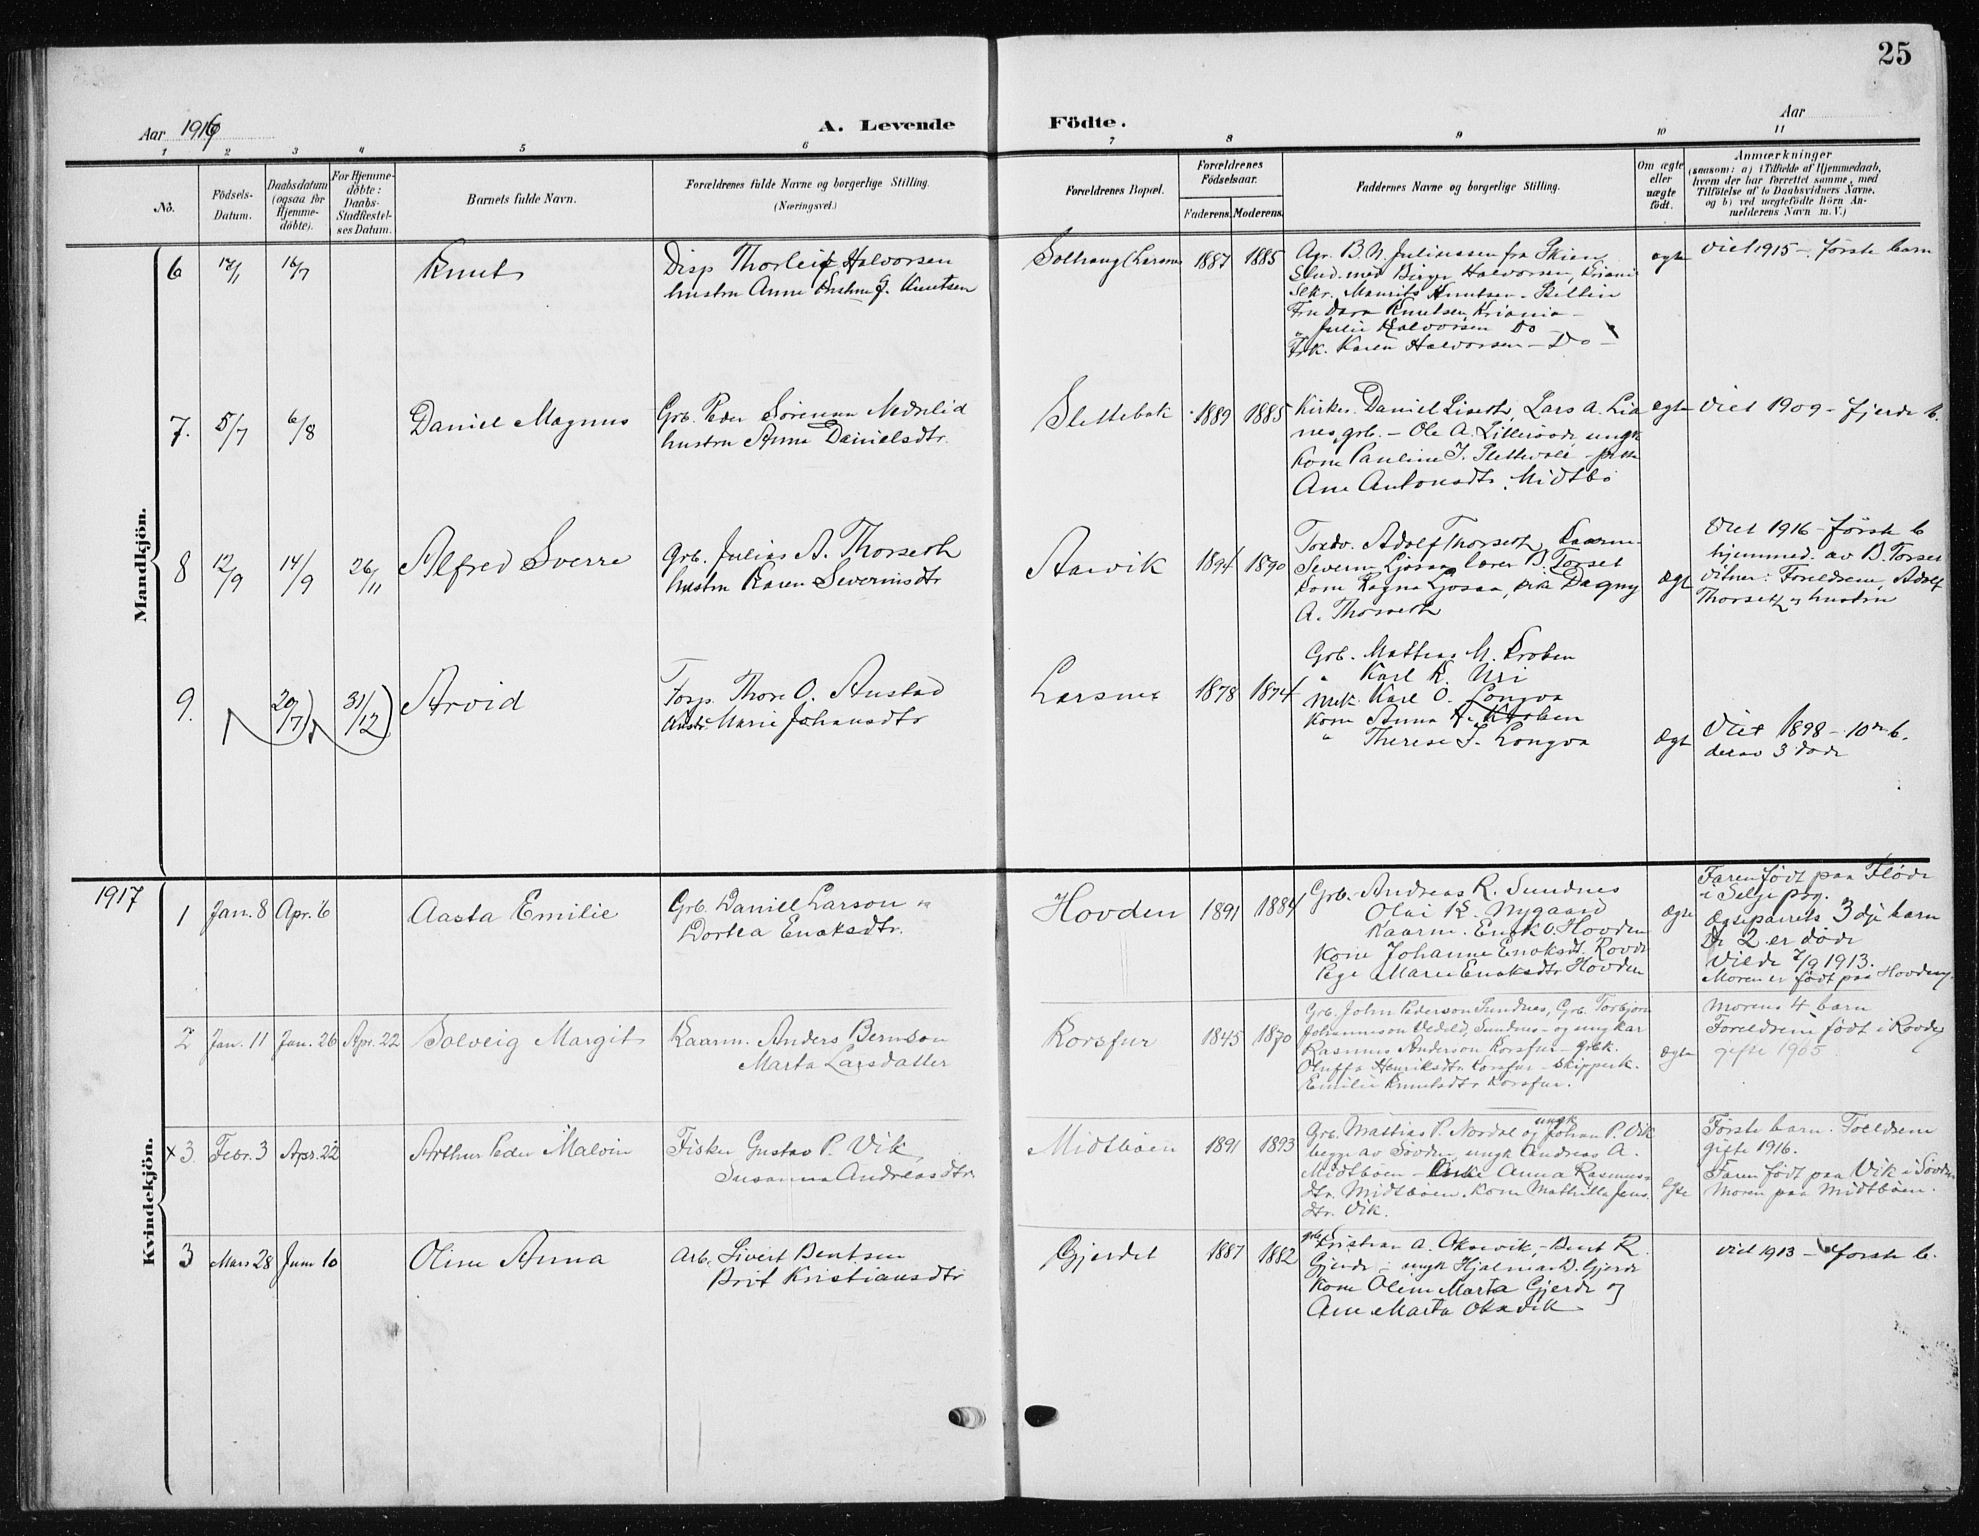 25
Aar 1916
A. Levende Födte.
Aar
1 2 3 4 5 6 7 8 9 10 11
No.
Födsels-
Datum.
Daabsdatum
(ogsaa for
Hjemme-
döbte).
For Hjemme-
döbte:
Daabs-
Stadfæstel-
ses Datum.
Barnets fulde Navn.
Forældrenes fulde Navne og borgerlige Stilling.
(Næringsvei.)
Forældrenes Bopæl.
Forældrenes
Födselsaar.
Faderens. Moderens.
Faddernes Navne og borgerlige Stilling.
Om ægte
eller
uægte
födt.
Anmærkninger
(saasom: a) i Tilfælde af Hjemmedaab,
hvem der har forrettet samme, med
Tilföielse af to Daabsvidners Navne,
og b) ved uægtefödte Börn An-
melderens Navn m. V.)
Mandkjön.
6
Knut
Disp. Thorleif Halvorsen
hustru Anne J. Knutsen
1887 1885
Agr. B. N. Juliussen fra Skien
Stud. med Birger Halvorsen, Kriania
Sekr. Maurits Knutsen
Fru Dora Knutsen Kriania
" Julie Halvorsen Do
Frk. Karen Halvorsen - Do -
ægte
Viet 1915 - første barn
7.
5/7
6/8
Daniel Magnus
Grb. Peder Sørensen
hustru Anna Danielsdtr.
Slettebak
1889 1885
Kirkes. Daniel Liseth, Lars A. Lia
nes, grb. - Ole A. ungk
Kone Pauline J.
Ane Antonsdtr. Midtbö
ægte
Viet 1909 - fjerde b.
8
12/9
14/9
26/11
Alfred Sverre
Grb. Julius A. Thorseth
hustru Karen Severinsdtr
Aarvik
1894 1890
Adolf Thorseth, Kaarm.
Severin Ljosaa, lærer B. Torset
Kone Ragna Ljosaa, pike Dagny
A. Thorseth
ægte
Viet 1916 - første b
hjemmed. av B. Torset
Vitner: Foreldrene, Adolf
Thorseth og hustru
9.
20/7
31/12
Arvid
Forp. Thore O. Anstad
hustr. Marie Johansdtr
Larsnes
1878 1874
Grb. Mathias M. Kroken
" Karl K. Uri
ungk. Karl O. Longva
Kone Anna A. Kroken
" Therese S. Longva
ægte
Viet 1898 - 10de b.
derav 3 döde
Kvindekjön.
1917
1
Jan. 8
Apr. 6
Aasta Emilie
Grb. Daniel Larson og
Dortea Enoksdtr.
Hovden
1891 1884
Grb. Andreas R. Sundnes
Olai K. Nygaard
Kaarm. Enok O. Hovden
Kone Johanne Enoksdt. Rovde
Pige Marie Enoksdtr Hovden
ægte
Faren født paa Flöde
i Selje pgj.
Ægteparrets 3dje barn
De 2 er döde
Viede 7/9 1913.
Moren er født paa Hovden
2
Jan. 11
Jan. 26
Apr. 22
Solveig Margit
Kaarm. Anders Berntson
Marta Larsdatter
Korsfur
1845 1870
Grb. John Pederson Sundnes, Grb. Torbjørn
Johannson Vedeld, Sundnes - og ungkar
Rasmus Anderson Korsfur - grbk.
Oluffa Henriksdtr. Korsfur - Skipperk.
Emilie Knutsdtr Korsfur.
ægte
Morens 4 barn
Foreldrene født i Rovde
gifte 1905
x3
Febr. 3
Apr. 22
Arthur Peder Malvin
Fisker Gustav P. Vik
Susanna Andreasdtr.
Midtböen
1891 1893
Grb. Mathias P. Nordal og ungk Johan P. Vik
begge av Søvde, ungk Andreas A.
Midtböen - Anna Rasmus-
dtr. Midtböen. Kone Mathilla Jens
dtr. Vik.
egte
Første barn. Foreldrene
gifte 1916.
Faren født paa Vik i Søvde
Moren paa Midtböen.
3
Mars 28
Juni 10
Oline Anna
Arb. Sivert Bentsen
Brit Kristiansdtr
Gjerdet
1887 1882
grb. Kristian A. Oksvik, - Bent R.
Gjerde - ungk Hjalmar D. Gjerde
Kone Oline Marta Gjerde og
Ane Marta Oksvik
viet 1913 - første b.